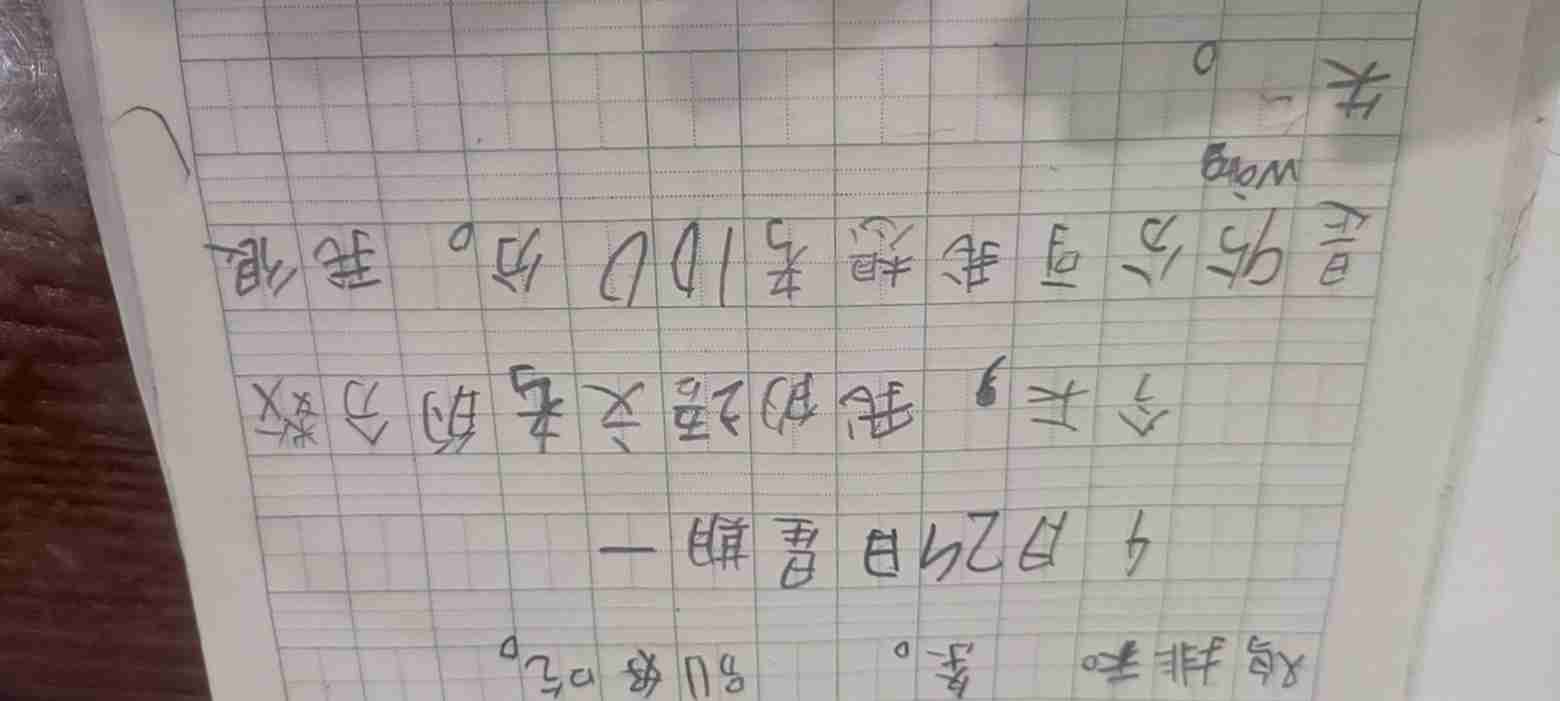 鸡排和 。 别好吃。
4月24日星期一
今天,我的语文考的分数
是95分可我想考100分。我很
wàng
失 。